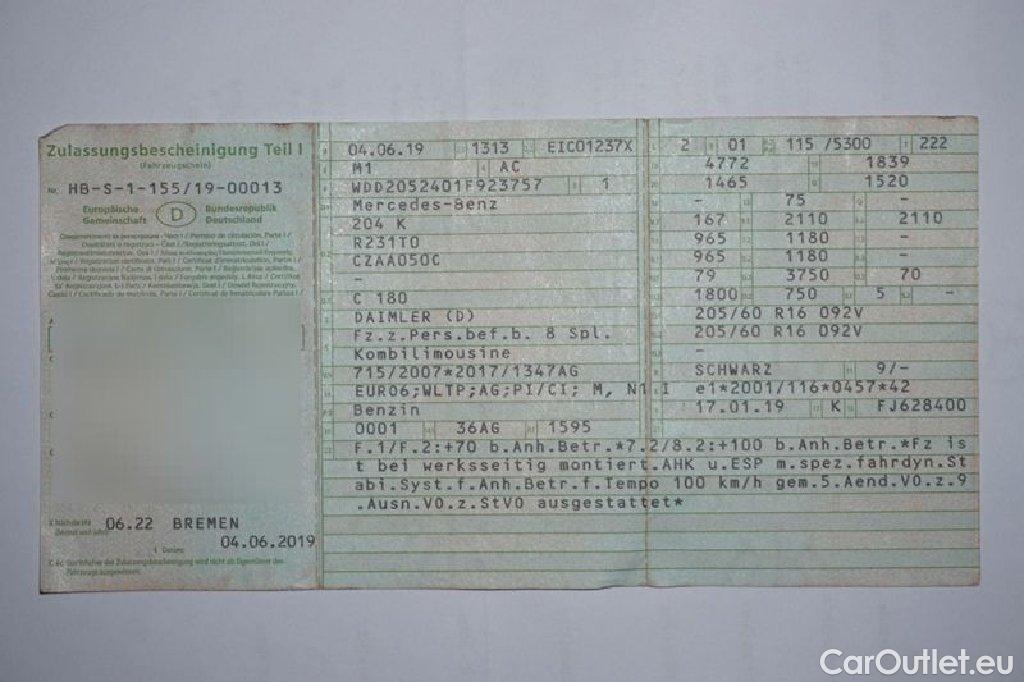 Zulassungsbescheinigung Teil I
(Fahrzeugschein)
Nr. HB-S-1-155/19-00013
Europäische Gemeinschaft
D
Bundesrepublik Deutschland
06.22 BREMEN
04.06.2019
04.06.19 1313 EIC01237X
M1 AC
WDD2052401F923757 1
Mercedes-Benz
204 K
R231T0
CZAA050C
-
C 180
DAIMLER (D)
Fz.z.Pers.bef.b. 8 Spl.
Kombilimousine
715/2007*2017/1347AG
EURO6;WLTP;AG;PI/CI; M, N1 I
Benzin
0001 36AG 1595
2 01 115 /5300 222
4772 1839
1465 1520
- 75 -
167 2110 2110
965 1180 -
965 1180 -
79 3750 70
1800 750 5 -
205/60 R16 092V
205/60 R16 092V
-
SCHWARZ 9/-
e1*2001/116*0457*42
17.01.19 K FJ628400
F.1/F.2:+70 b.Anh.Betr.*7.2/8.2:+100 b.Anh.Betr.*Fz is
t bei werksseitig montiert.AHK u.ESP m.spez.fahrdyn.St
abi.Syst.f.Anh.Betr.f.Tempo 100 km/h gem.5.Aend.VO.z.9
.Ausn.VO.z.StVO ausgestattet*
CarOutlet.eu